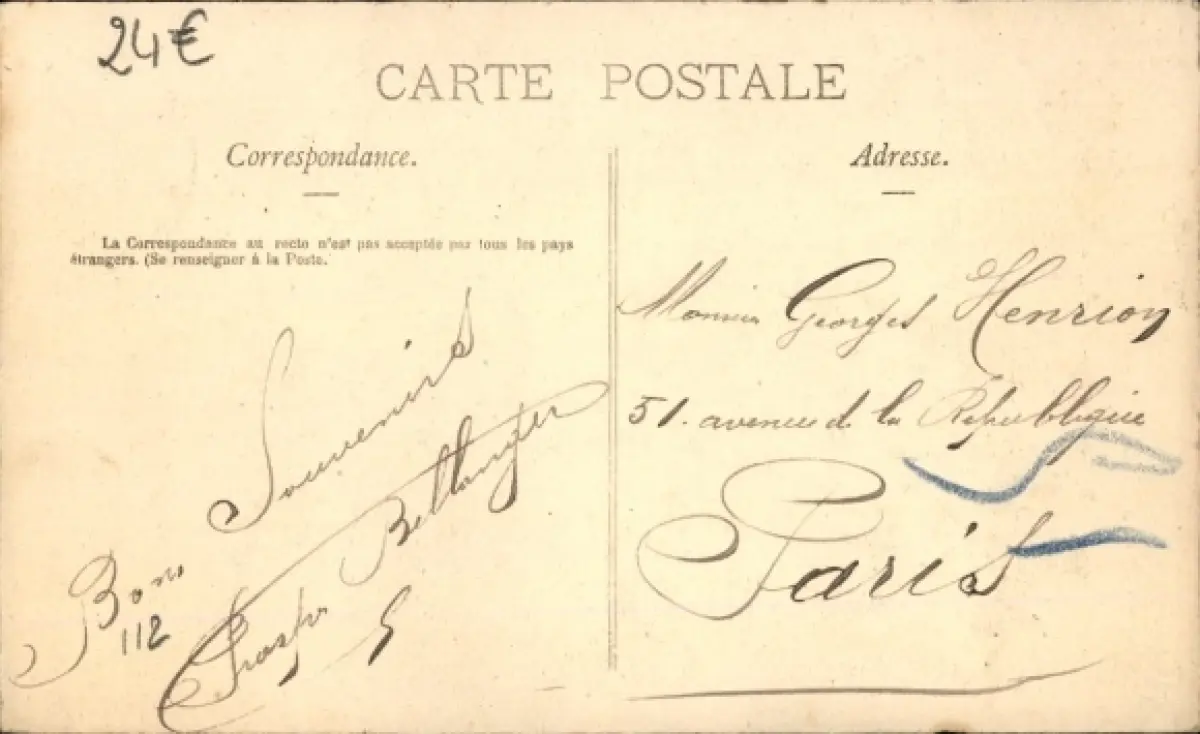 24€
CARTE POSTALE
Correspondance.
La Correspondance au recto n'est pas acceptée par tous les pays
étrangers. (Se renseigner à la Poste.
Bons Souvenirs
Bellanger
112
Adresse.
Monsieur Georges Henrion
51. avenue de la République
Paris